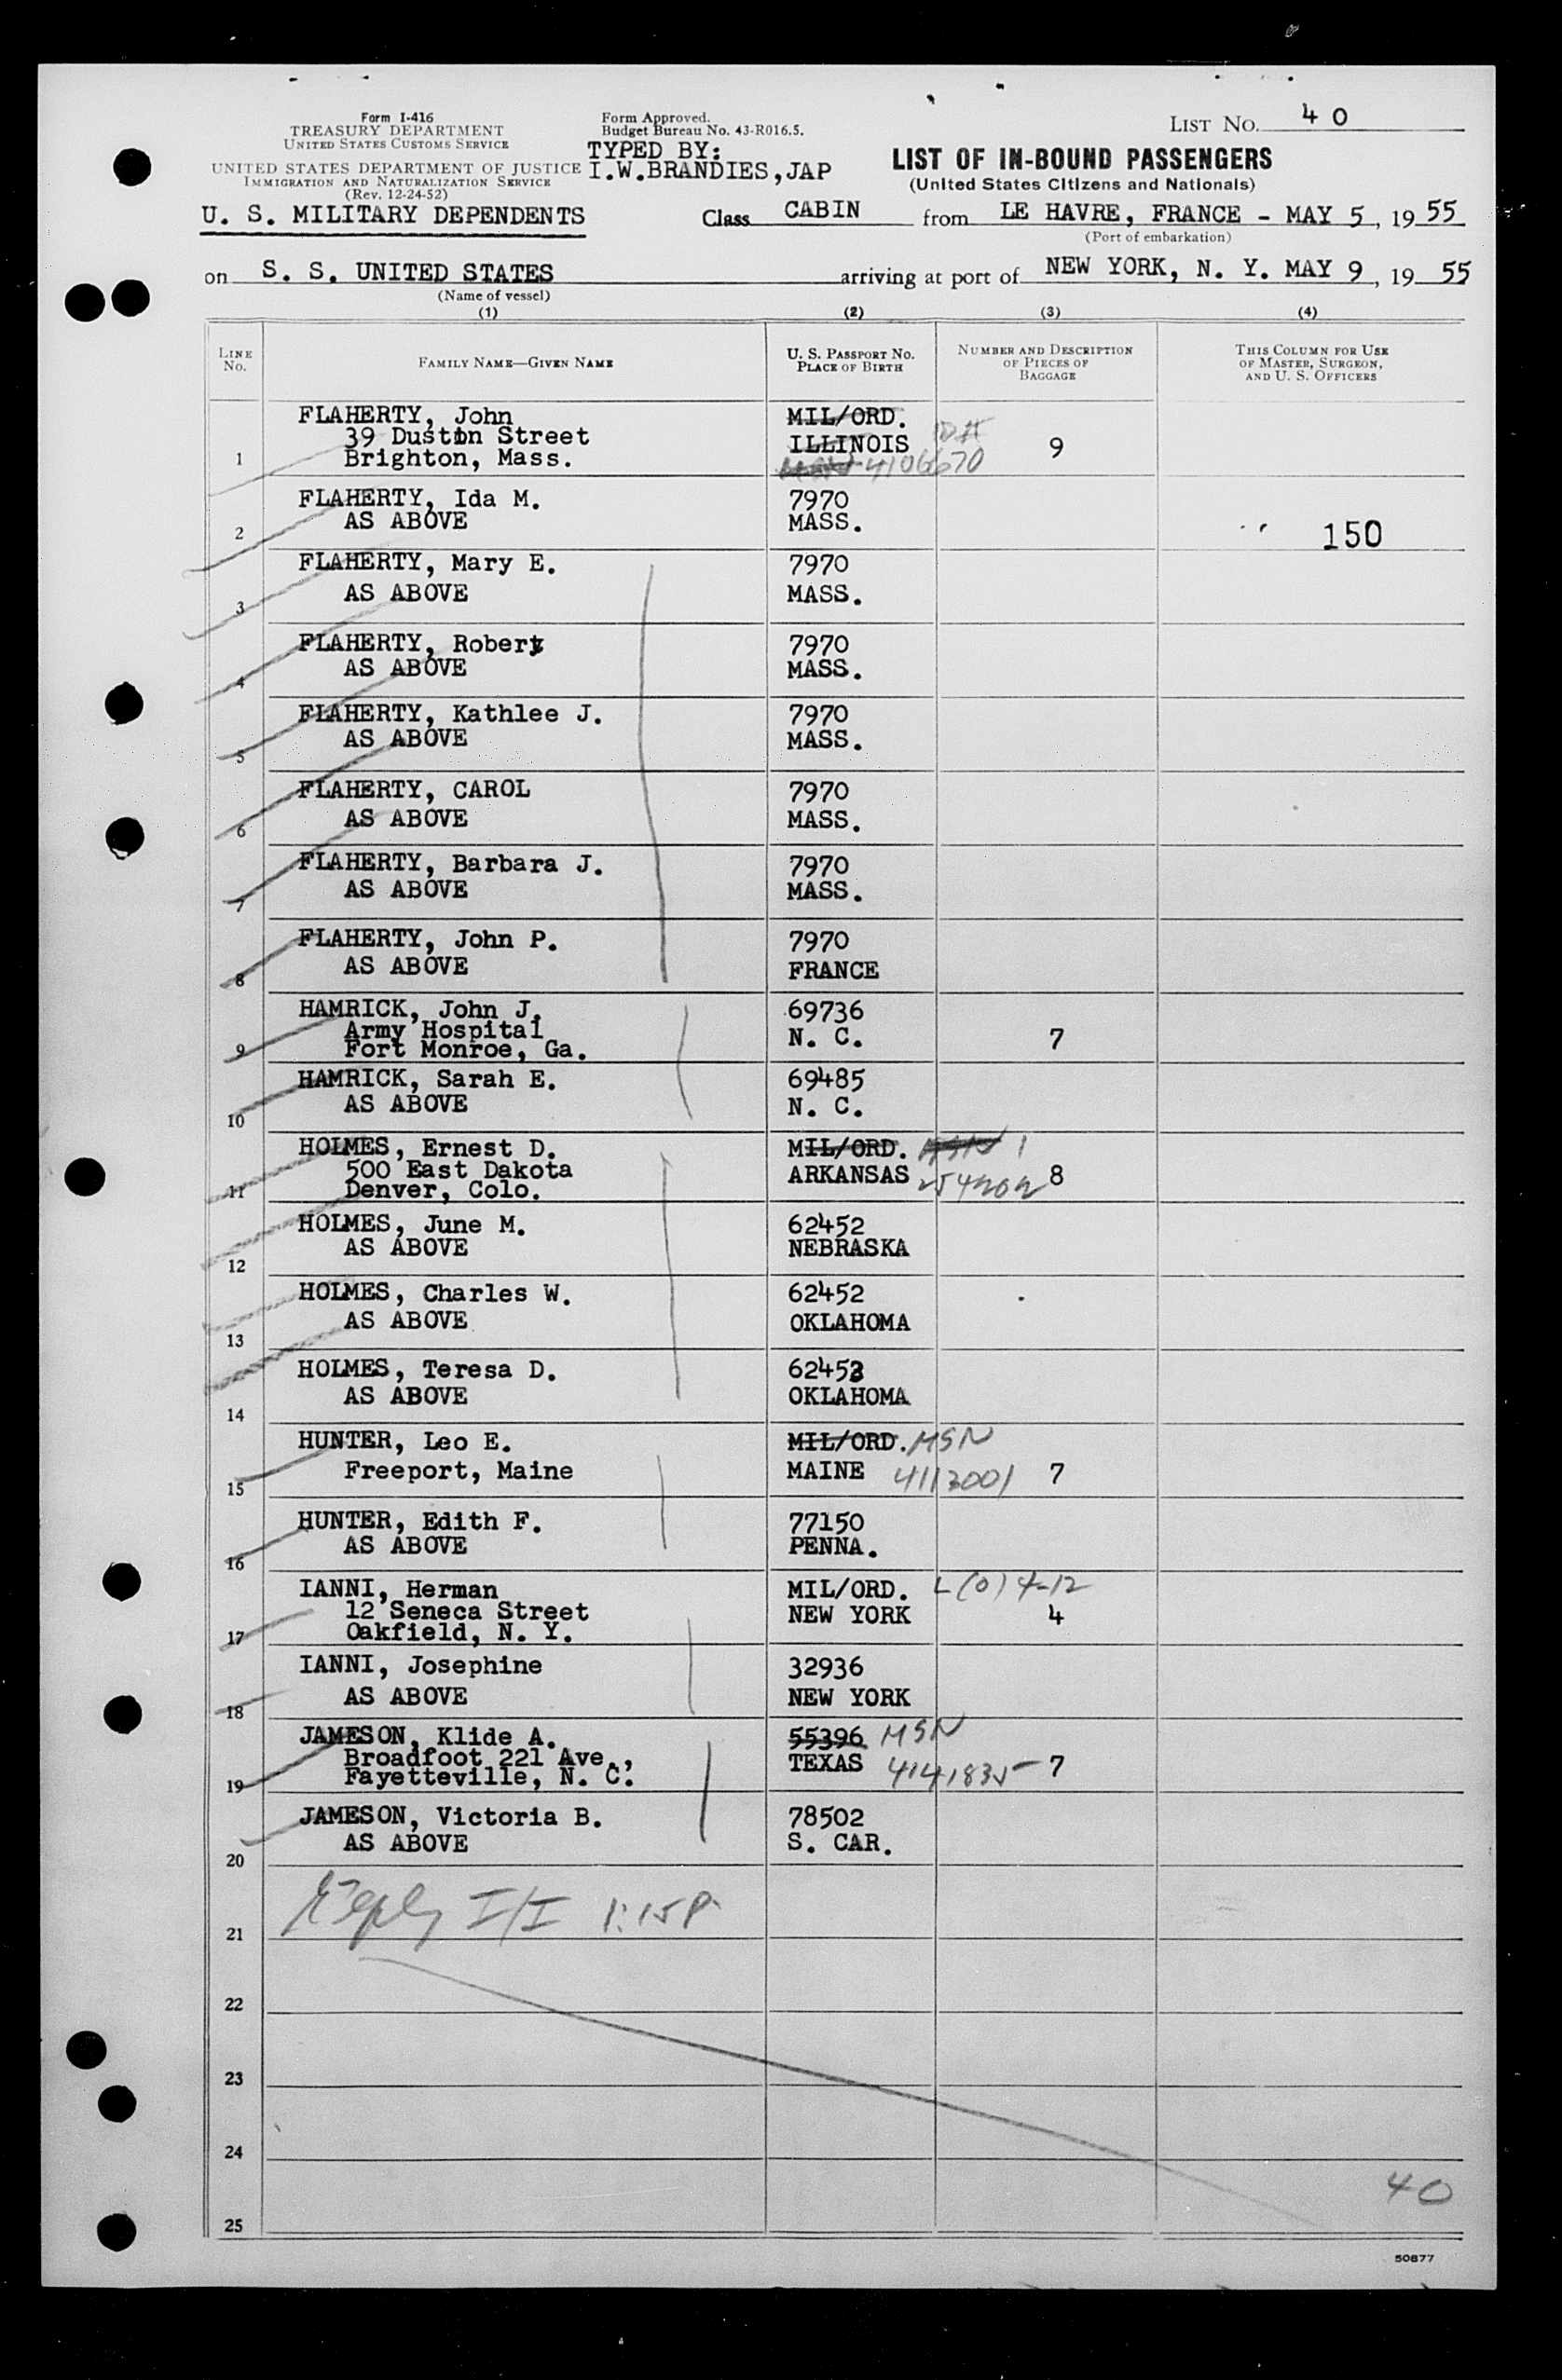 Form I-416
TREASURY DEPARTMENT
UNITED STATES CUSTOMS SERVICE
UNITED STATES DEPARTMENT OF JUSTICE
IMMIGRATION AND NATURALIZATION SERVICE
(Rev. 12-24-52)
Form Approved.
Budget Bureau No. 43-R016.5.
TYPED BY:
I.W.BRANDIES,JAP
LIST NO. 40
LIST OF IN-BOUND PASSENGERS
(United States Citizens and Nationals)
U. S. MILITARY DEPENDENTS
Class CABIN from LE HAVRE, FRANCE - MAY 5, 19 55
(Port of embarkation)
on S. S. UNITED STATES arriving at port of NEW YORK, N. Y. MAY 9, 19 55
(Name of vessel)
(1) (2) (3) (4)
LINE NO.
FAMILY NAME—GIVEN NAME
U. S. PASSPORT NO.
PLACE OF BIRTH
NUMBER AND DESCRIPTION
OF PIECES OF
BAGGAGE
THIS COLUMN FOR USE
OF MASTER, SURGEON,
AND U. S. OFFICERS
FLAHERTY, John MIL/ORD.
39 Dustin Street ILLINOIS ID# 9
1 Brighton, Mass. 4106670
FLAHERTY, Ida M. 7970
2 AS ABOVE MASS. 150
FLAHERTY, Mary E. 7970
3 AS ABOVE MASS.
FLAHERTY, Robert 7970
4 AS ABOVE MASS.
FLAHERTY, Kathlee J. 7970
5 AS ABOVE MASS.
FLAHERTY, CAROL 7970
6 AS ABOVE MASS.
FLAHERTY, Barbara J. 7970
7 AS ABOVE MASS.
FLAHERTY, John P. 7970
8 AS ABOVE FRANCE
HAMRICK, John J. 69736
Army Hospital N. C. 7
9 Fort Monroe, Ga.
HAMRICK, Sarah E. 69485
10 AS ABOVE N. C.
HOLMES, Ernest D. MIL/ORD. MSN 1
500 East Dakota ARKANSAS 8
11 Denver, Colo.
HOLMES, June M. 62452
12 AS ABOVE NEBRASKA
HOLMES, Charles W. 62452
13 AS ABOVE OKLAHOMA
HOLMES, Teresa D. 62453
14 AS ABOVE OKLAHOMA
HUNTER, Leo E. MIL/ORD. MSN
15 Freeport, Maine MAINE 4113001 7
HUNTER, Edith F. 77150
16 AS ABOVE PENNA.
IANNI, Herman MIL/ORD. L(0) 4-12
12 Seneca Street NEW YORK 4
17 Oakfield, N. Y.
IANNI, Josephine 32936
18 AS ABOVE NEW YORK
JAMESON, Klide A. 55396 MSN
Broadfoot 221 Ave., TEXAS 4141835 7
19 Fayetteville, N. C.
JAMESON, Victoria B. 78502
20 AS ABOVE S. CAR.
21 I/I 1:15P
22
23
24
40
25
50877